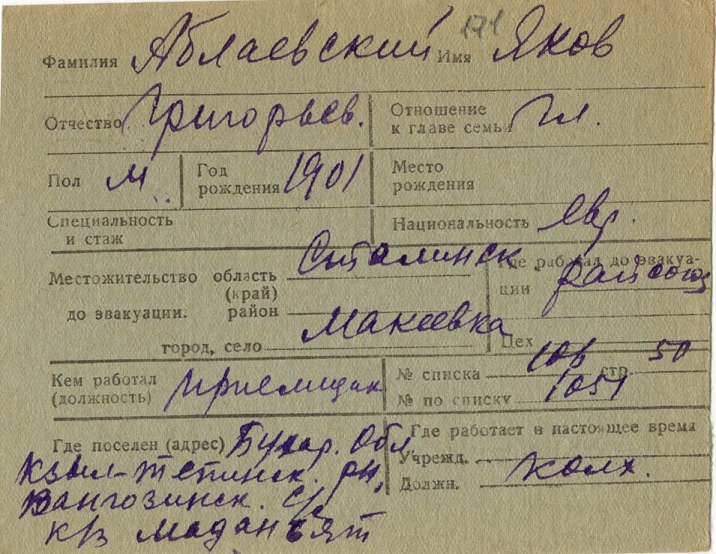 171
Фамилия Аблаевский Имя Яков
Отчество Григорьев. Отношение к главе семьи Гл.
Пол М Год рождения 1901 Место рождения
Специальность и стаж Национальность Евр.
Местожительство область (край) Сталинск. Где работал до эвакуации райсоюз
до эвакуации. район
город, село Макеевка Цех
Кем работал (должность) приемщик № списка 106 стр. 50
№ по списку 1051
Где поселен (адрес) Бухар. Обл Где работает в настоящее время
Кзыл-Тепинск. рн, Учрежд.
Вангозинск. с/с Должн. колх.
к/з Маданьят